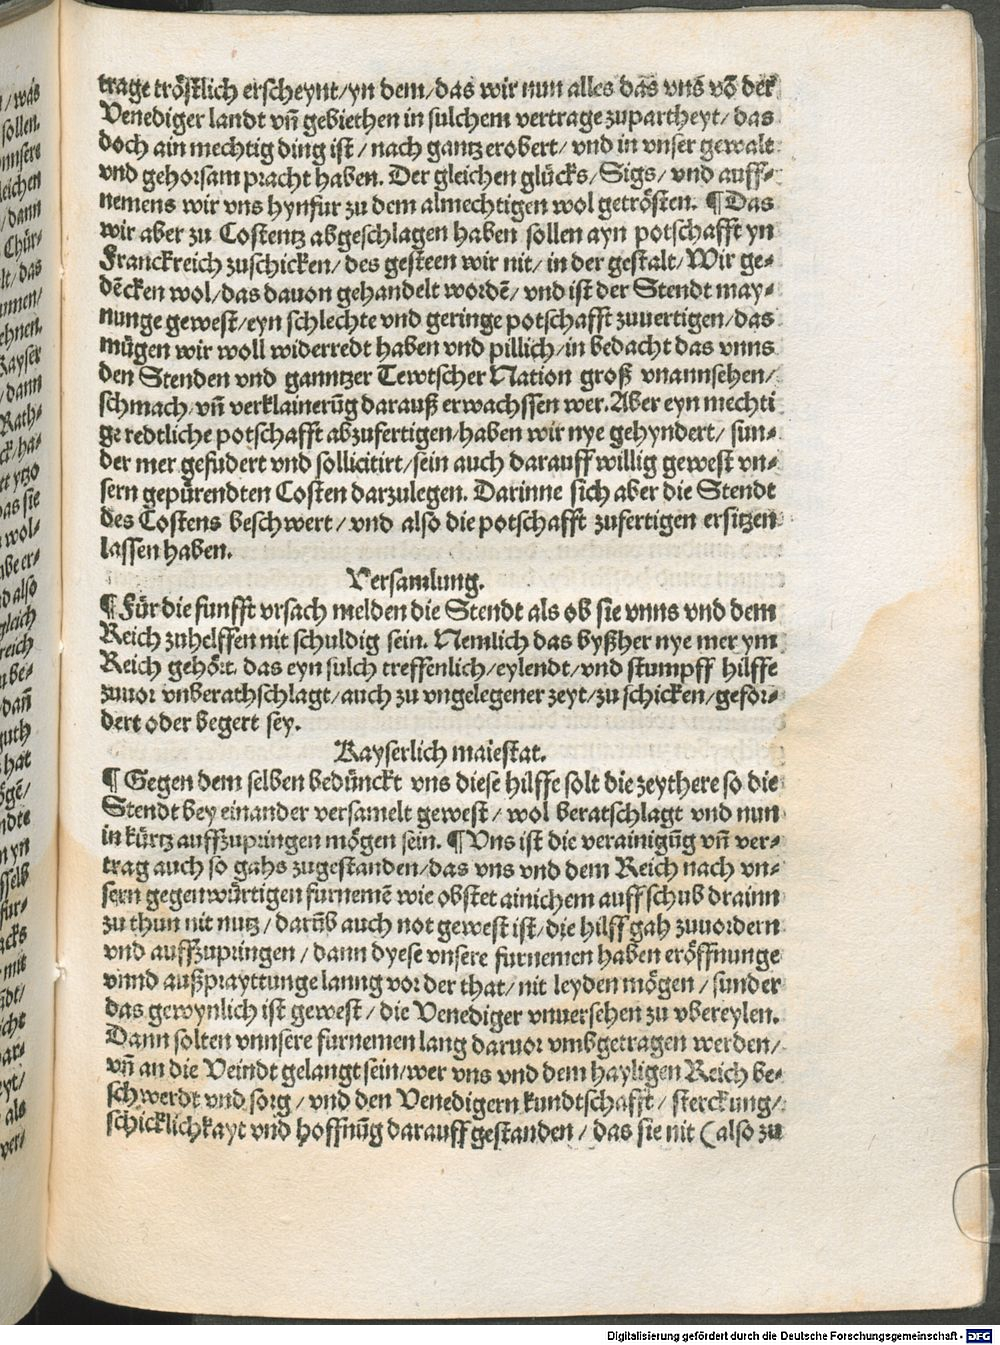 trage tröstlich erscheynt/yn dem/das wir nun alles das vns võ der
Venediger landt vñ gebiethen in sulchem vertrage zupartheyt/das
doch ain mechtig ding ist/nach gantz erobert/vnd in vnser gewalt
vnd gehorsam pracht haben. Der gleichen glücks/Sigs/vnd auff-
nemens wir vns hynfur zu dem almechtigen wol getrösten. ¶ Das
wir aber zu Costentz abgeschlagen haben sollen ayn potschafft yn
Franckreich zuschicken/des gesteen wir nit/in der gestalt/Wir ge-
dẽcken wol/das dauon gehandelt wordẽ/vnd ist der Stendt may-
nunge gewest/eyn schlechte vnd geringe potschafft zuuertigen/das
mügen wir woll widerredt haben vnd pillich/in bedacht das vnns
den Stenden vnd ganntzer Tewtscher Nation groß vnannsehen/
schmach/vñ verklainerũg darauß erwachssen wer. Aber eyn mechti
ge redtliche potschafft abzufertigen/haben wir nye gehyndert/sun-
der mer gefudert vnd sollicitirt/sein auch darauff willig gewest vn-
sern gepürendten Costen darzulegen. Darinne sich aber die Stendt
des Costens beschwert/vnd also die potschafft zufertigen ersitzen
lassen haben.
Versamlung.
¶ Für die funfft vrsach melden die Stendt als ob sie vnns vnd dem
Reich zuhelffen nit schuldig sein. Nemlich das byßher nye mer ym
Reich gehört. das eyn sulch treffenlich/eylendt/vnd stumpff hilffe
zuuor vnberathschlagt/auch zu vngelegener zeyt/zu schicken/gefor-
dert oder begert sey.
Kayserlich maiestat.
¶ Gegen dem selben bedünckt vns diese hilffe solt die zeythere so die
Stendt bey einander versamelt gewest/wol beratschlagt vnd nun
in kürtz auffzupringen mögen sein. ¶ Vns ist die verainigũg vñ ver-
trag auch so gahs zugestanden/das vns vnd dem Reich nach vn-
sern gegenwürtigen furnemẽ wie obstet ainichem auffschub drainn
zu thun nit nutz/darũb auch not gewest ist/die hilff gah zuuordern
vnd auffzupringen/dann dyese vnsere furnemen haben eröffnunge
vnnd außprayttunge lanng vor der that/nit leyden mögen/sunder
das gewynlich ist gewest/die Venediger vnuersehen zu vbereylen.
Dann solten vnnsere furnemen lang daruor vmbgetragen werden/
vñ an die Veindt gelangt sein/wer vns vnd dem hayligen Reich be-
schwerdt vnd sorg/vnd den Venedigern kundtschafft/sterckung/
schicklichkayt vnd hoffnũg darauff gestanden/das sie nit (also zu
Digitalisierung gefördert durch die Deutsche Forschungsgemeinschaft - DFG